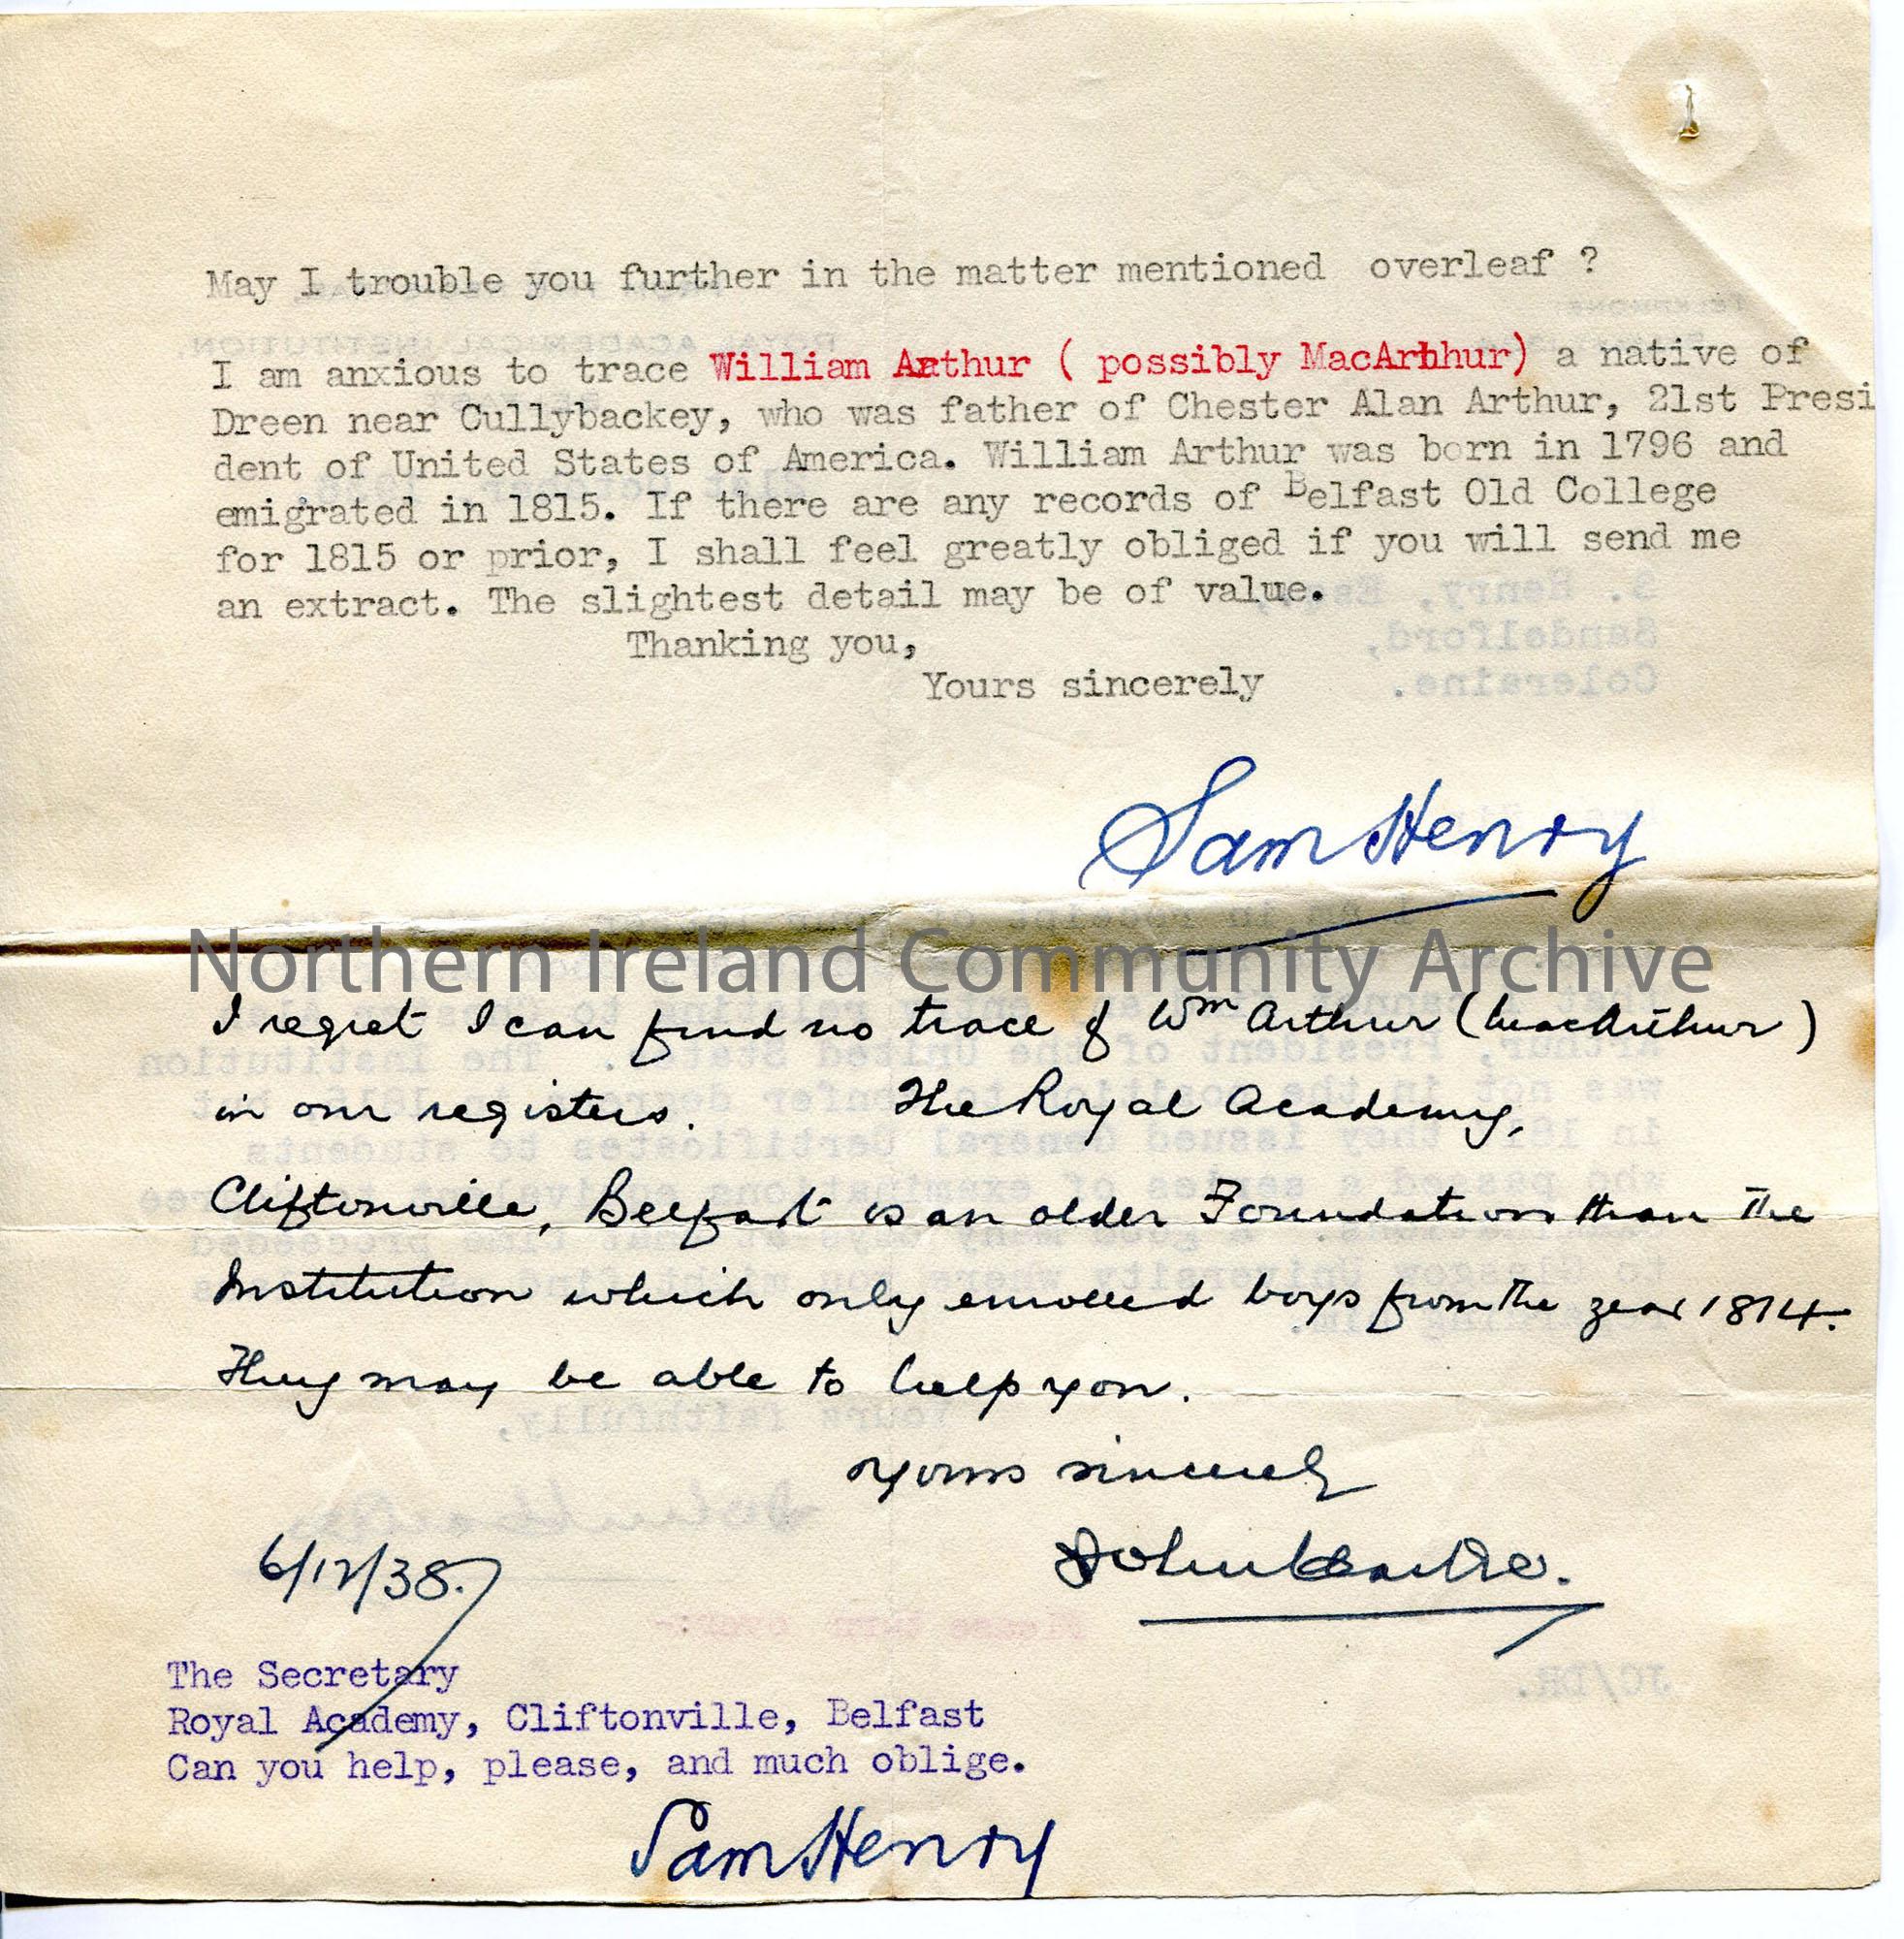 May I trouble you further in the matter mentioned overleaf ?
I am anxious to trace William Arthur ( possibly MacArthur) a native of
Dreen near Cullybackey, who was father of Chester Alan Arthur, 21st Presi
dent of United States of America. William Arthur was born in 1796 and
emigrated in 1815. If there are any records of Belfast Old College
for 1815 or prior, I shall feel greatly obliged if you will send me
an extract. The slightest detail may be of value.
Thanking you,
Yours sincerely
Sam Henry
Northern Ireland Community Archive
I regret I can find no trace of Wm Arthur (MacArthur)
in our registers. The Royal Academy,
Cliftonville, Belfast is an older Foundation than the
Institution which only enrolled boys from the year 1814.
They may be able to help you.
Yours sincerely
John
6/12/38.
The Secretary
Royal Academy, Cliftonville, Belfast
Can you help, please, and much oblige.
Sam Henry